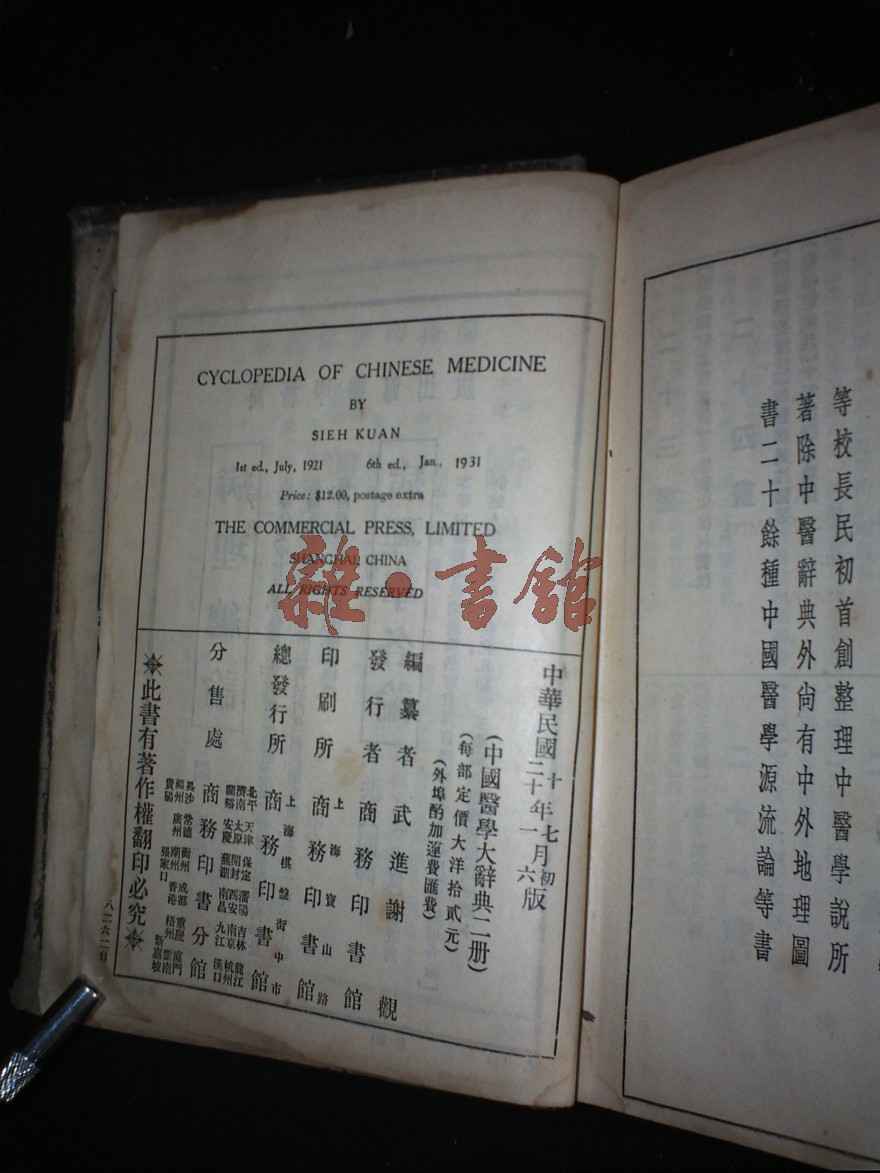 CYCLOPEDIA OF CHINESE MEDICINE
BY
SIEH KUAN
1st ed., July, 1921 6th ed., Jan., 1931
Price: $12.00, postage extra
THE COMMERCIAL PRESS, LIMITED
SHANGHAI, CHINA
ALL RIGHTS RESERVED
雜·書館
中華民國十年七月初版
二十年一月六版
(中國醫學大辭典二册)
(每部定價大洋拾貳元)
(外埠酌加運費匯費)
編纂者 武進謝觀
發行者 商務印書館
印刷所 上海寶山路 商務印書館
總發行所 上海棋盤街中市 商務印書館
分售處 商務印書分館
北平 天津 保定 瀋陽 吉林 龍江
濟南 太原 開封 西安 南京 杭州
蘭谿 安慶 蕪湖 南昌 九江 漢口
長沙 常德 衡州 成都 重慶 廈門
福州 廣州 潮州 香港 梧州 雲南
貴陽 張家口 新嘉坡
※此書有著作權翻印必究※
等校長民初首創整理中醫學說所
著除中醫辭典外尚有中外地理圖
書二十餘種中國醫學源流論等書